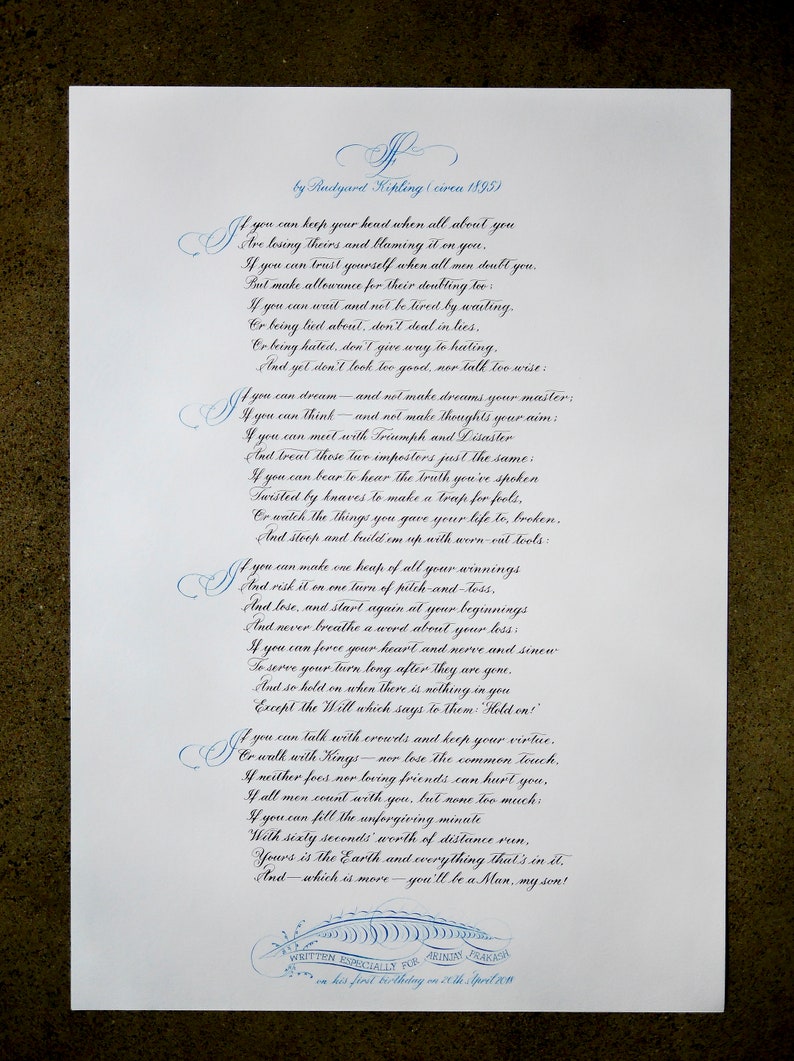 If
by Rudyard Kipling (circa 1895)
If you can keep your head when all about you
Are losing theirs and blaming it on you,
If you can trust yourself when all men doubt you,
But make allowance for their doubting too;
If you can wait and not be tired by waiting,
Or being lied about, don't deal in lies,
Or being hated, don't give way to hating,
And yet don't look too good, nor talk too wise:
If you can dream — and not make dreams your master;
If you can think — and not make thoughts your aim;
If you can meet with Triumph and Disaster
And treat those two impostors just the same;
If you can bear to hear the truth you've spoken
Twisted by knaves to make a trap for fools,
Or watch the things you gave your life to, broken,
And stoop and build 'em up with worn-out tools:
If you can make one heap of all your winnings
And risk it on one turn of pitch-and-toss,
And lose, and start again at your beginnings
And never breathe a word about your loss;
If you can force your heart and nerve and sinew
To serve your turn long after they are gone,
And so hold on when there is nothing in you
Except the Will which says to them: 'Hold on!'
If you can talk with crowds and keep your virtue,
Or walk with Kings — nor lose the common touch,
If neither foes nor loving friends can hurt you,
If all men count with you, but none too much;
If you can fill the unforgiving minute
With sixty seconds' worth of distance run,
Yours is the Earth and everything that's in it,
And — which is more — you'll be a Man, my son!
WRITTEN ESPECIALLY FOR ARINJAY PRAKASH
on his first birthday on 20th April 2018